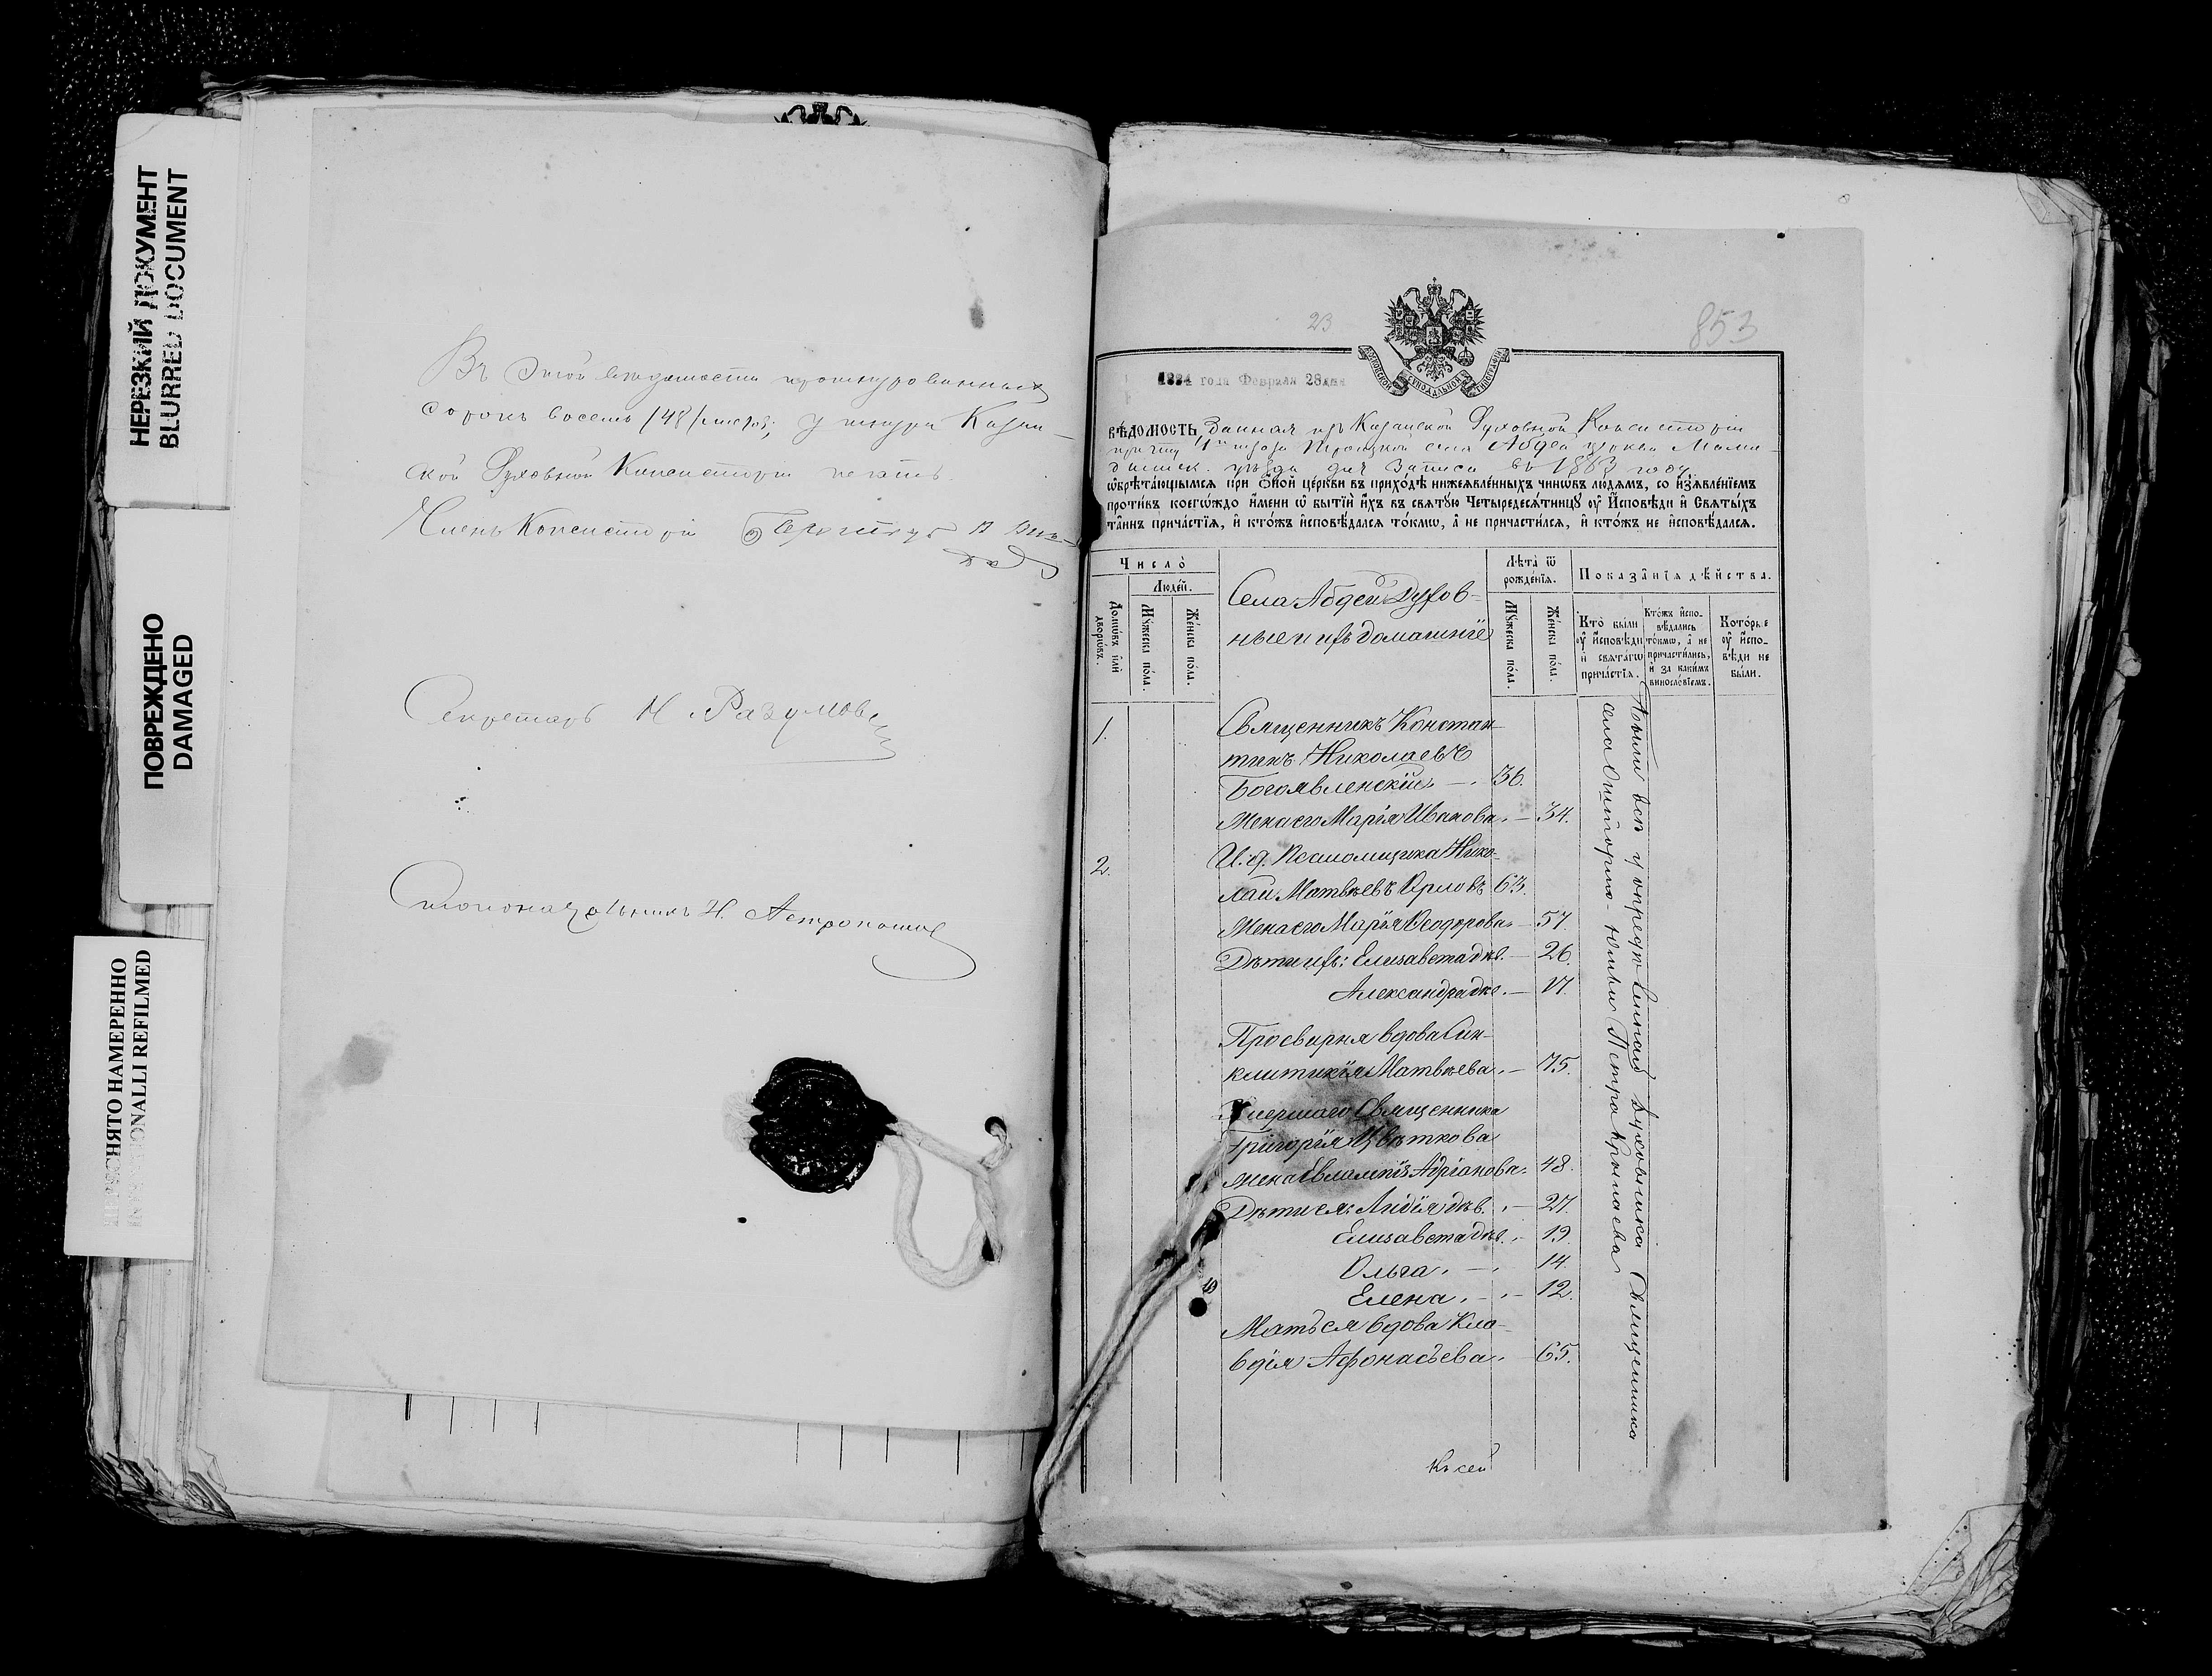 НЕРЕЗКИЙ ДОКУМЕНТ
BLURRED DOCUMENT
ПОВРЕЖДЕНО
DAMAGED
НЯТО НАМЕРЕННО
ONALLI REFILMED
Въ этой ведомости прошнурованныхъ
сорокъ восемь /48/ листовъ, у шнура Казан-
ской Духовной Консисторіи печать.
Членъ Консисторіи
Секретарь Н. Разумов
Столоначальникъ Н.
23
853
МОСКОВСКОЙ СѴНОДАЛЬНОЙ ТИПОГРАФІИ
1884 года Февраля 28 дня
ВѢДОМОСТЬ, Данная изъ Казанской Духовной Консисторіи
причту Троицкой села Абдей церкви Мама-
дышск. уѣзда для записи въ 1883 году
ѡ҆брѣта́ющымсѧ при ѻ҆́ной це́ркви въ прихо́дѣ нижеѧвле́нныхъ чинѡ́въ лю́дѧмъ, со и҆з̾ѧвле́нїемъ
проти́въ коегѡ́ждо и҆́мени ѡ҆ бытїѝ и҆́хъ въ свѧтꙋ́ю Четыредесѧ́тницꙋ ᲂу҆ И҆сповѣ́ди и҆ Свѧты́хъ
та̑инъ прича́стїѧ, и҆ кто́жъ и҆сповѣ́далсѧ то́кмѡ, а҆ не причасти́лсѧ, и҆ кто́жъ не и҆сповѣ́далсѧ.
Число̀
Людей.
Домѡ́въ и҆лѝ дворѡ́въ.
Мꙋ́жеска по́ла.
Же́нска по́ла.
Села Абдей Духов-
ные и ихъ домашніе
Лѣ́та ѿ рожде́нїѧ.
Мꙋ́жеска по́ла.
Же́нска по́ла.
Показа̑нїѧ дѣ́йства.
Кто̀ бы́ли ᲂу҆ и҆сповѣ́ди и҆ свѧта́гѡ прича́стїѧ.
Кто́жъ и҆спо-вѣ́дались то́кмѡ, а҆ не причасти́лись, и҆ за каки́мъ винословїемъ.
Кото́рые ᲂу҆ и҆спо-вѣ́ди не бы́ли.
1. Священникъ Констан-
тинъ Николаевъ
Богоявленскій — 36.
Жена его Марія Иванова — 34.
2. И. д. Псаломщика Нико-
лай Матвѣевъ Орловъ 63.
Жена его Марія Ѳеодорова — 57.
Дѣти ихъ: Елизавета дѣв. — 26.
Александра дѣв. — 17.
Просвирня вдова Син-
клитикія Матвѣева — 75.
Умершаго Священника
Григорія Цвѣткова
жена Евлампія Адріанова 48.
Дѣти ея: Лидія дѣв. — 27.
Елизавета дѣв. — 19.
Ольга — 14.
Елена — 12.
Мать ея вдова Кла-
вдія Афонасьева — 65.
Къ сей
духовника Священника
села Петра